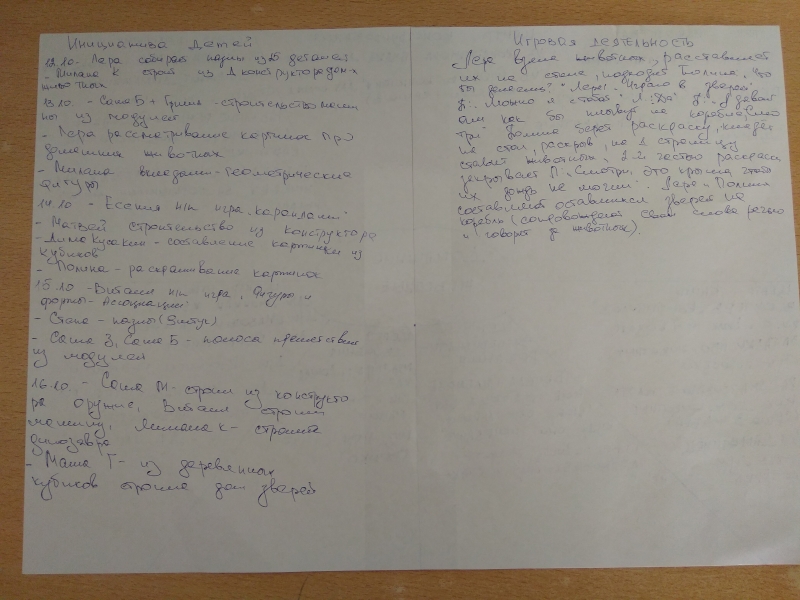 Инициатива детей
12.10 - Лера собирает пазлы из 25 деталей
- Милана К строит из Д конструктора дом
животных
13.10. - Саша Б + Гриша - строительство маши
ны из модулей
- Лера рассматривание картинок про
домашних животных
- Милана вкладыши - геометрические
фигуры
14.10 - Есения н/п игра "Карандаши"
- Матвей строительство из конструктора
- Дима Кусакин - составление картинки из
кубиков
- Полина - раскрашивание картинок
15.10 - Виталя н/п игра "Фигуры и
формы - Ассоциации"
- Стана - пазлы (9 штук)
- Саша З, Саша Б - полоса препятствия
из модулей
16.10. - Саша М - строил из конструкто
ра оружие, Виталя строит
машину, Милана К - строит
динозавра
- Маша Т - из деревянных
кубиков строила дом зверей
Игровая деятельность
Лера взяла животных, расставляет
их на столе, подходит Полина, "Что
ты делаешь?" Лера: "Играю в зверей"
П: "Можно я с тобой" Л: "Да" П: "А давай
они как бы плывут на корабле,
Полина берет раскраску, кладет
на стол, раскрыв, на 1 страницу
ставит животных, 2-й частью раскраски
закрывает П: "Смотри, это крыша чтоб
их дождь не мочил". Лера и Полина
составляют оставшихся зверей на
корабль (сопровождают свои слова речью
и говорят за животных).